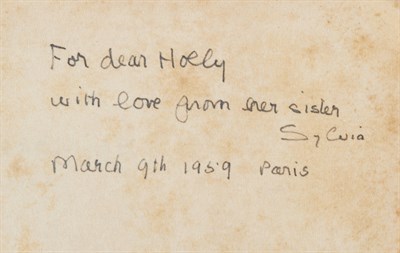 For dear Holly
with love from her sister
Sylvia
March 9th 1959 Paris